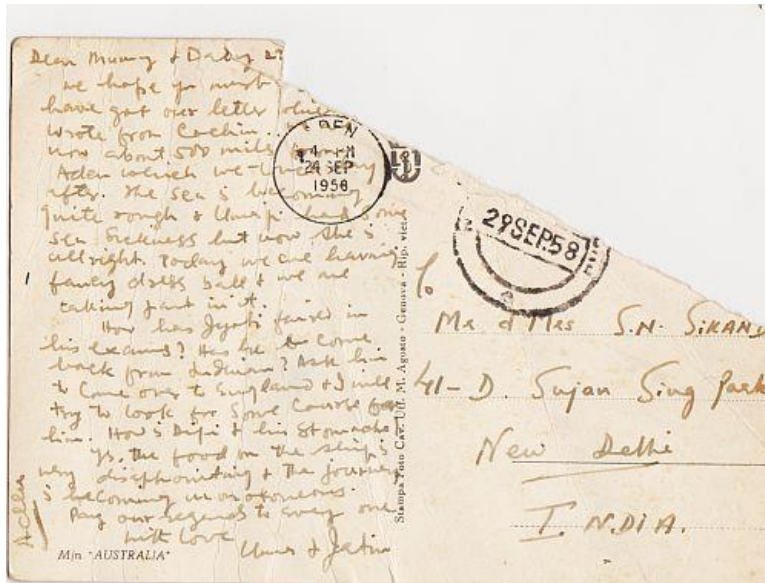 Dear Mummy & Dady 2?
we hope yo must
have got our letter which
wrote from Cochin.
now about 500 miles from
Aden which we touch day
after. The sea is becoming
quite rough & Uma ji had some
sea sickness but now she is
allright. Today we are having
fancy dress ball & we are
taking part in it.
How has Jyoti faired in
his exams? Has he come
back from? Ask him
to come over to England & I will
try to look for some course for
him. How's Dipi & his stomach
Ys. The food on the ship is
very disaphointing & the journey
is becoming monotomeous.
Pay our regards to every one
with love
Uma & Jatin
M/n "AUSTRALIA"
ADEN
4 - PM
24 SEP
1958
Stampa Foto Cav. Uff. M. Agosto - Genova - Rip. viet
29 SEP. 58
To
Mr & Mrs S.N. SIKAND
41-D. Sujan Sing Park
New Delhi
INDIA.